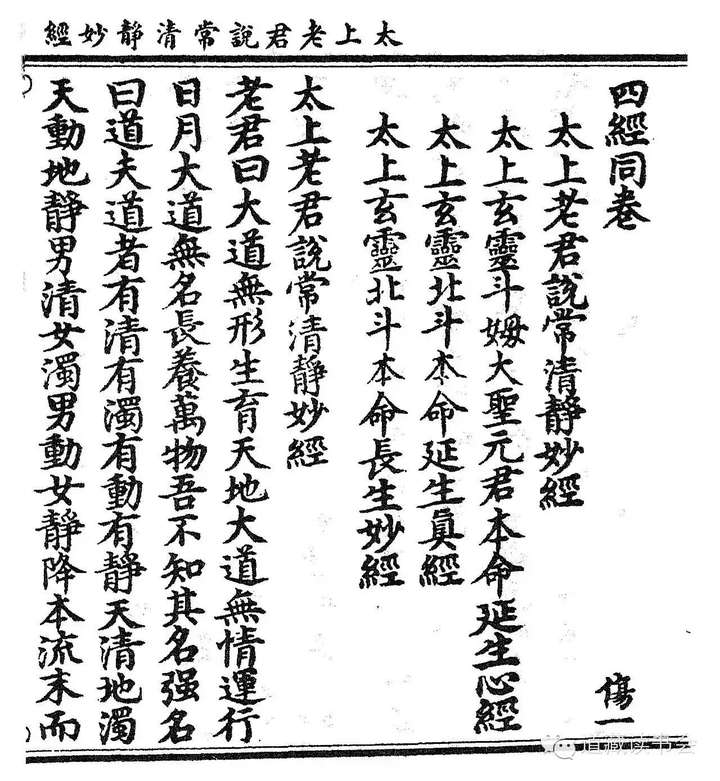 太上老君說常清靜妙經
四經同卷
傷一
太上老君說常清靜妙經
太上玄靈斗姆大聖元君本命延生心經
太上玄靈北斗本命延生眞經
太上玄靈北斗本命長生妙經
太上老君說常清靜妙經
老君曰大道無形生育天地大道無情運行
日月大道無名長養萬物吾不知其名强名
曰道夫道者有清有濁有動有靜天清地濁
天動地靜男清女濁男動女靜降本流末而
道藏读书会